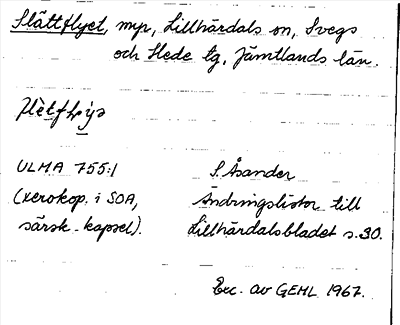 Slåttflyet, myr, Lillhärdals sn, Svegs
och Hede tg, Jämtlands län.
ULMA 755:1
(xerokop. i SOA,
särsk. kapsel).
S. Åsander
Ändringslistor till
Lillhärdalsbladet s. 30.
Exc. av GEHL 1967.